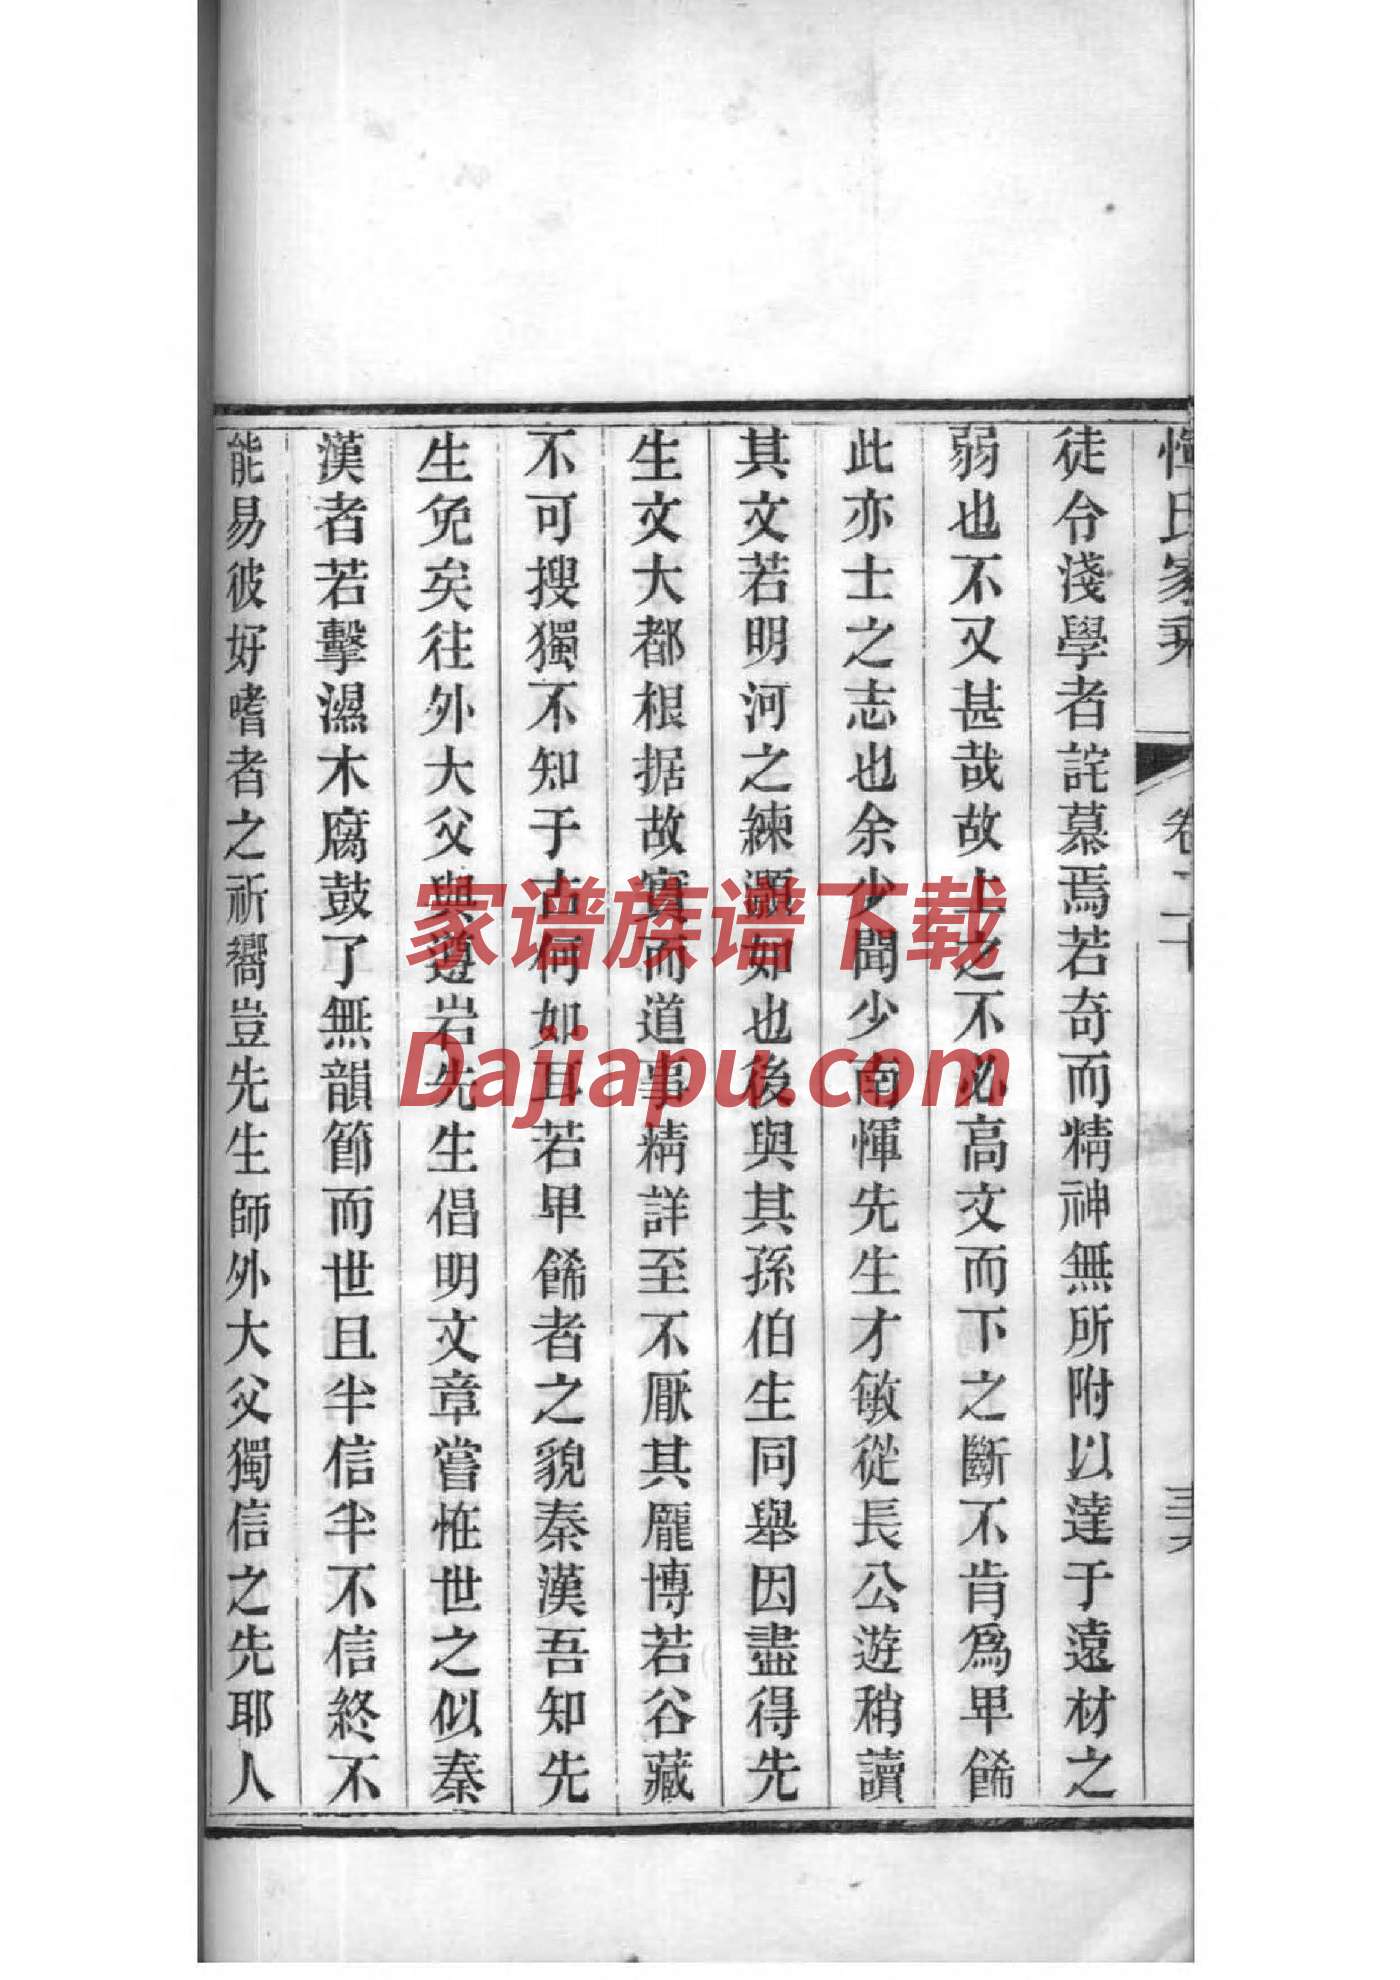 惲氏家乘
卷二十
三六
徒令淺學者詫慕焉若奇而精神無所附以達于遠材之
弱也不又甚哉故士之不必高文而下之斷不肯爲畢餙
此亦士之志也余少聞少南惲先生才敏從長公遊稍讀
其文若明河之練灝如也後與其孫伯生同舉因盡得先
生文大都根据故實而道事精詳至不厭其龐博若谷藏
不可搜獨不知于古何如耳若畢餙者之貌秦漢吾知先
生免矣往外大父與遵岩先生倡明文章嘗恠世之似秦
漢者若擊濕木腐鼓了無韻節而世且半信半不信終不
能易彼好嗜者之祈嚮豈先生師外大父獨信之先耶人
家谱族谱下载
Dajiapu.com